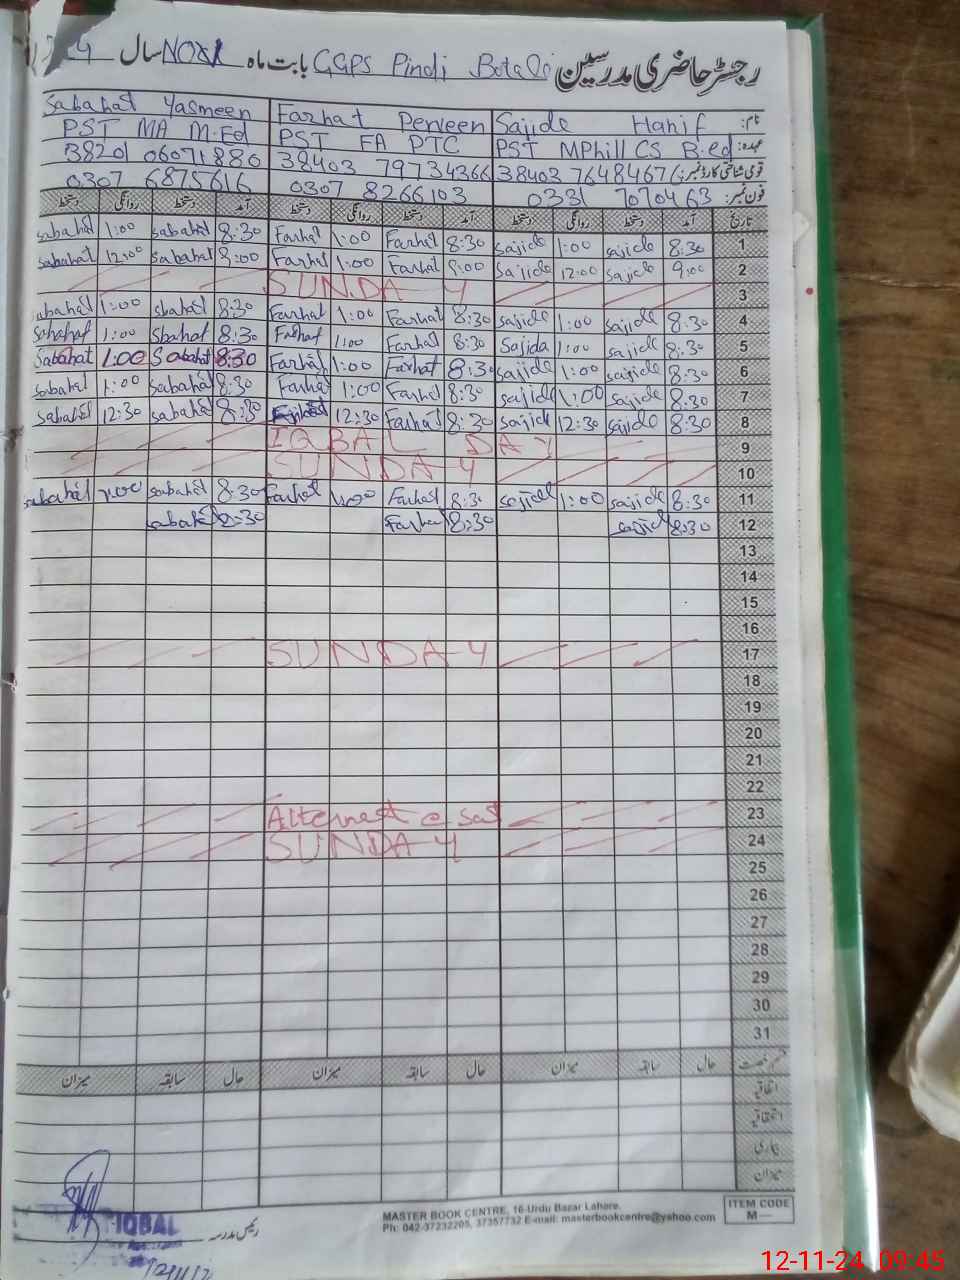 رجسٹر حاضری مدرسین GGPS Pindi Botala بابت ماہ Nov سال
نام: Sajida Hanif Farhat Perveen Sabahat Yasmeen
عہدہ: PST MPhill CS B.ed PST FA PTC PST MA M.Ed
قومی شناختی کارڈ نمبر: 38403 76484676 38403 79734366 38201 06071880
فون نمبر: 0331 7070463 0307 8266103 0307 6875616
تاریخ آمد دستخط روانگی دستخط آمد دستخط روانگی دستخط آمد دستخط روانگی دستخط
1 8:30 sajida 1:00 sajida 8:30 Farhat 1:00 Farhat 8:30 sabahat 1:00 sabahat
2 9:00 sajida 12:00 sajida 8:00 Farhat 1:00 Farhat 8:00 sabahat 12:00 sabahat
3 SUNDAY
4 8:30 sajida 1:00 sajida 8:30 Farhat 1:00 Farhat 8:30 sbahat 1:00 sabahat
5 8:30 sajida 1:00 Sajida 8:30 Farhat 1:00 Farhat 8:30 Sbahat 1:00 Sabahat
6 8:30 sajida 1:00 sajida 8:30 Farhat 1:00 Farhat 8:30 Sabahat 1:00 Sabahat
7 8:30 sajida 1:00 sajida 8:30 Farhat 1:00 Farhat 8:30 sabahat 1:00 sabahat
8 8:30 sajida 12:30 sajida 8:30 Farhat 12:30 Farhat 8:30 sabahat 12:30 sabahat
9 IQBAL DAY
10 SUNDAY
11 8:30 sajida 1:00 sajida 8:30 Farhat 1:00 Farhat 8:30 sabahat 1:00 sabahat
12 8:30 sajida 8:30 Farhat 8:30 sabahat
13
14
15
16
17 SUNDAY
18
19
20
21
22
23 Alternast e sat
24 SUNDAY
25
26
27
28
29
30
31
قسم رخصت حال سابقہ میزان حال سابقہ میزان حال سابقہ میزان
اتفاقیہ
استحقاقیہ
بیماری
میزان
رئیس مدرسہ
IQBAL
MASTER BOOK CENTRE, 16-Urdu Bazar Lahore.
Ph: 042-37232205, 37357732 E-mail: masterbookcentre@yahoo.com
ITEM CODE
M—
12-11-24 09:45